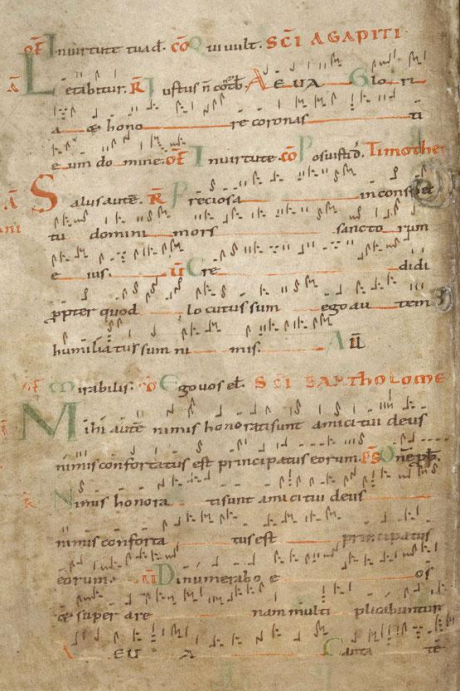 OF In virtute tua d. CO Qui vult. SCI AGAPITI
A Letabitur. R Iustus n̄ cōtb. AEVIA Glori
a & hono re coronas ti
eum domine. OF In virtute. CO Posuisti d̄. Timothei
A Salus autē. R Preciosa in conspec
tu domini mors sanctorum
eius. V Cre didi
ppter quod locutus sum ego autem
humiliatus sum nimis. A V
OF Mirabilis. CO Ego vos el. SCI BARTHOLOME
Mihi autē nimis honorati sunt amici tui deus
nimis confortatus est principatus eorum. PS Dn̄e pb.
R Nimis honora ti sunt amici tui deus
nimis conforta tus est principatus
eorum. V Dinumerabo e os
& super are nam multi plicabuntur
AEVIA tē